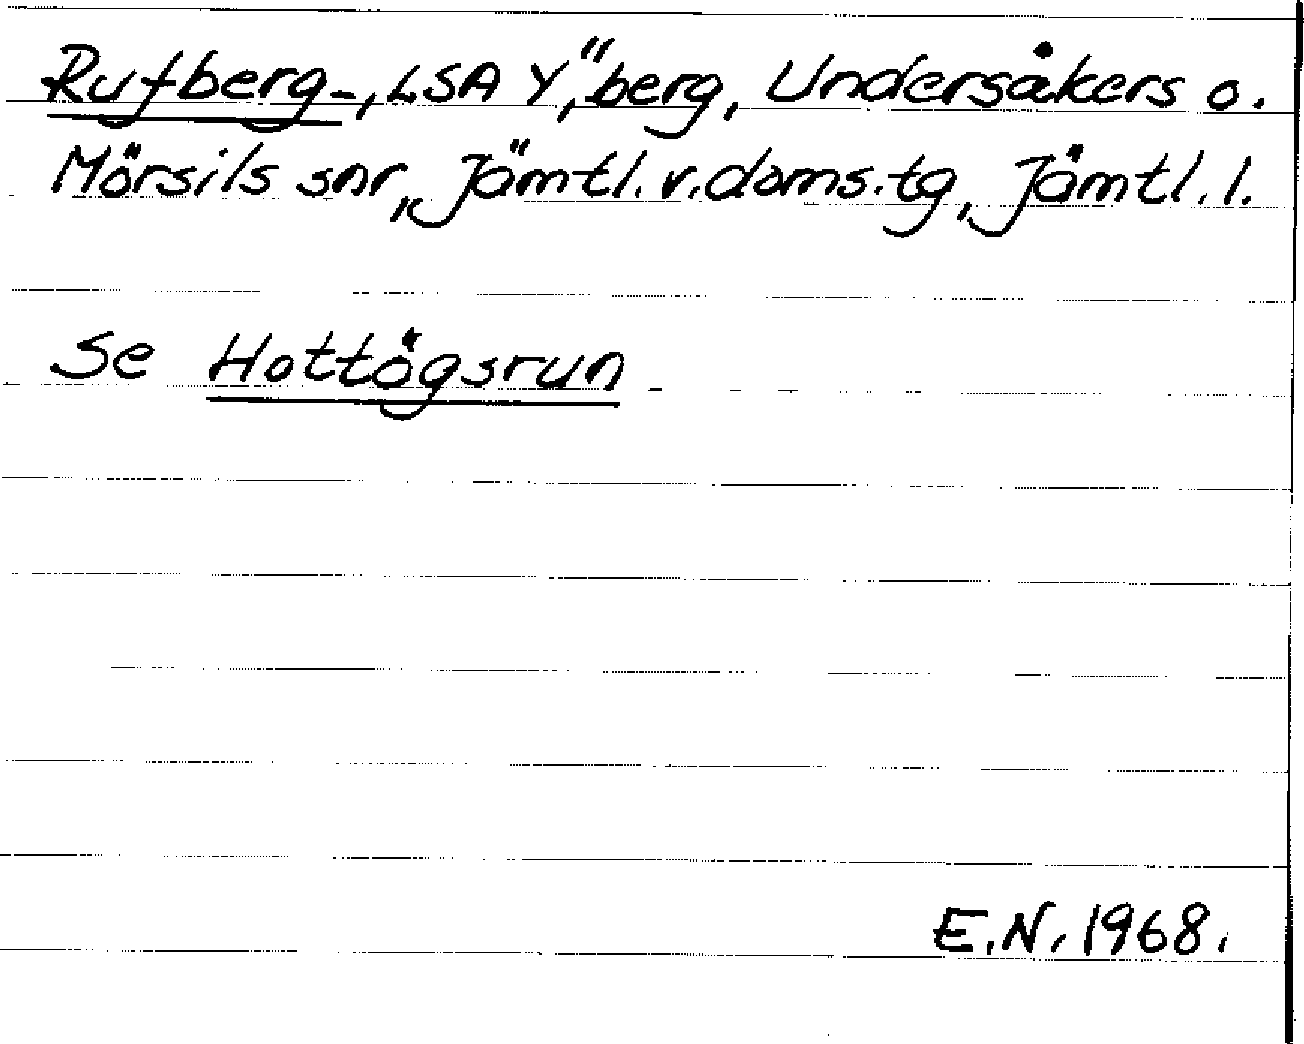 Rufberg-, LSA Y, "berg, Undersåkers o.
Mörsils snr, Jämtl. v. doms. tg, Jämtl. l.
Se Hottögsrun
E.N. 1968.